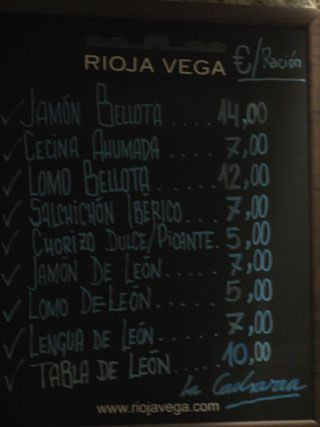 RIOJA VEGA €/Ración
✓ JAMÓN BELLOTA ..... 14,00
✓ CECINA AHUMADA .... 7,00
✓ LOMO BELLOTA ...... 12,00
✓ SALCHICHÓN IBÉRICO.... 7,00
✓ CHORIZO DULCE/PICANTE. 5,00
✓ JAMÓN DE LEÓN...... 7,00
✓ LOMO DE LEÓN....... 5,00
✓ LENGUA DE LEÓN..... 7,00
✓ TABLA DE LEÓN.... 10,00
la
www.riojavega.com